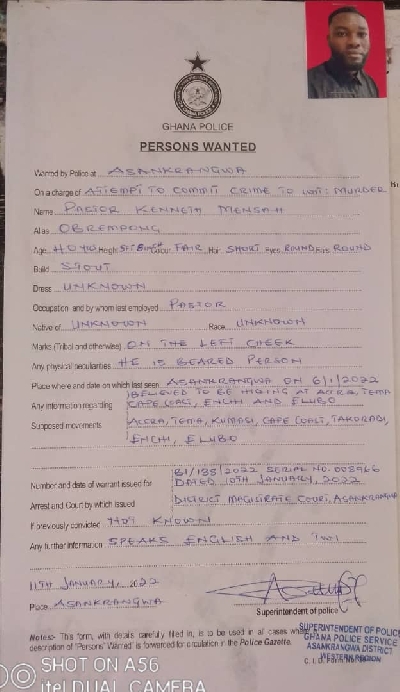 GHANA POLICE
PERSONS WANTED
Wanted by Police at ASANKRANGWA
On a charge of ATTEMPT TO COMMIT CRIME TO WIT: MURDER
Name PASTOR KENNETH MENSAH
Alias OBREMPONG
Age 40 YRS Height Colour FAIR Hair SHORT Eyes ROUND Face ROUND
Build STOUT
Dress UNKNOWN
Occupation and by whom last employed PASTOR
Native of UNKNOWN Race UNKNOWN
Marks (Tribal and otherwise) ON THE LEFT CHEEK
Any physical peculiarities HE IS BEARED PERSON
Place where and date on which last seen ASANKRANGWA ON 6/1/2022
Any information regarding BELIEVED TO BE HIDING AT ACCRA, TEMA
CAPE COAST, ENCHI AND ELUBO
Supposed movements ACCRA, TEMA, KUMASI, CAPE COAST, TAKORADI,
ENCHI, ELUBO
B1/135/2022 SERIAL NO.
Number and date of warrant issued for DATED 10TH JANUARY, 2022
Arrest and Court by which issued DISTRICT MAGISTRATE COURT, ASANKRANGWA
If previously convicted NOT KNOWN
Any further information SPEAKS ENGLISH AND TWI
11TH JANUARY, 2022
Place ASANKRANGWA
Superintendent of police
SUPERINTENDENT OF POLICE
GHANA POLICE SERVICE
ASANKRANGWA DISTRICT
WESTERN REGION
Notes:- This form, with details carefully filled in, is to be used in all cases where
description of "Persons Wanted" is forwarded for circulation in the Police Gazette.
SHOT ON A56
itel DUAL CAMERA